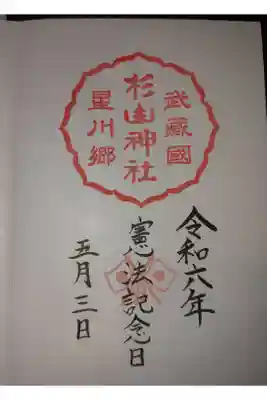 武蔵國
杉山神社
星川郷
令和六年
憲法記念日
五月三日